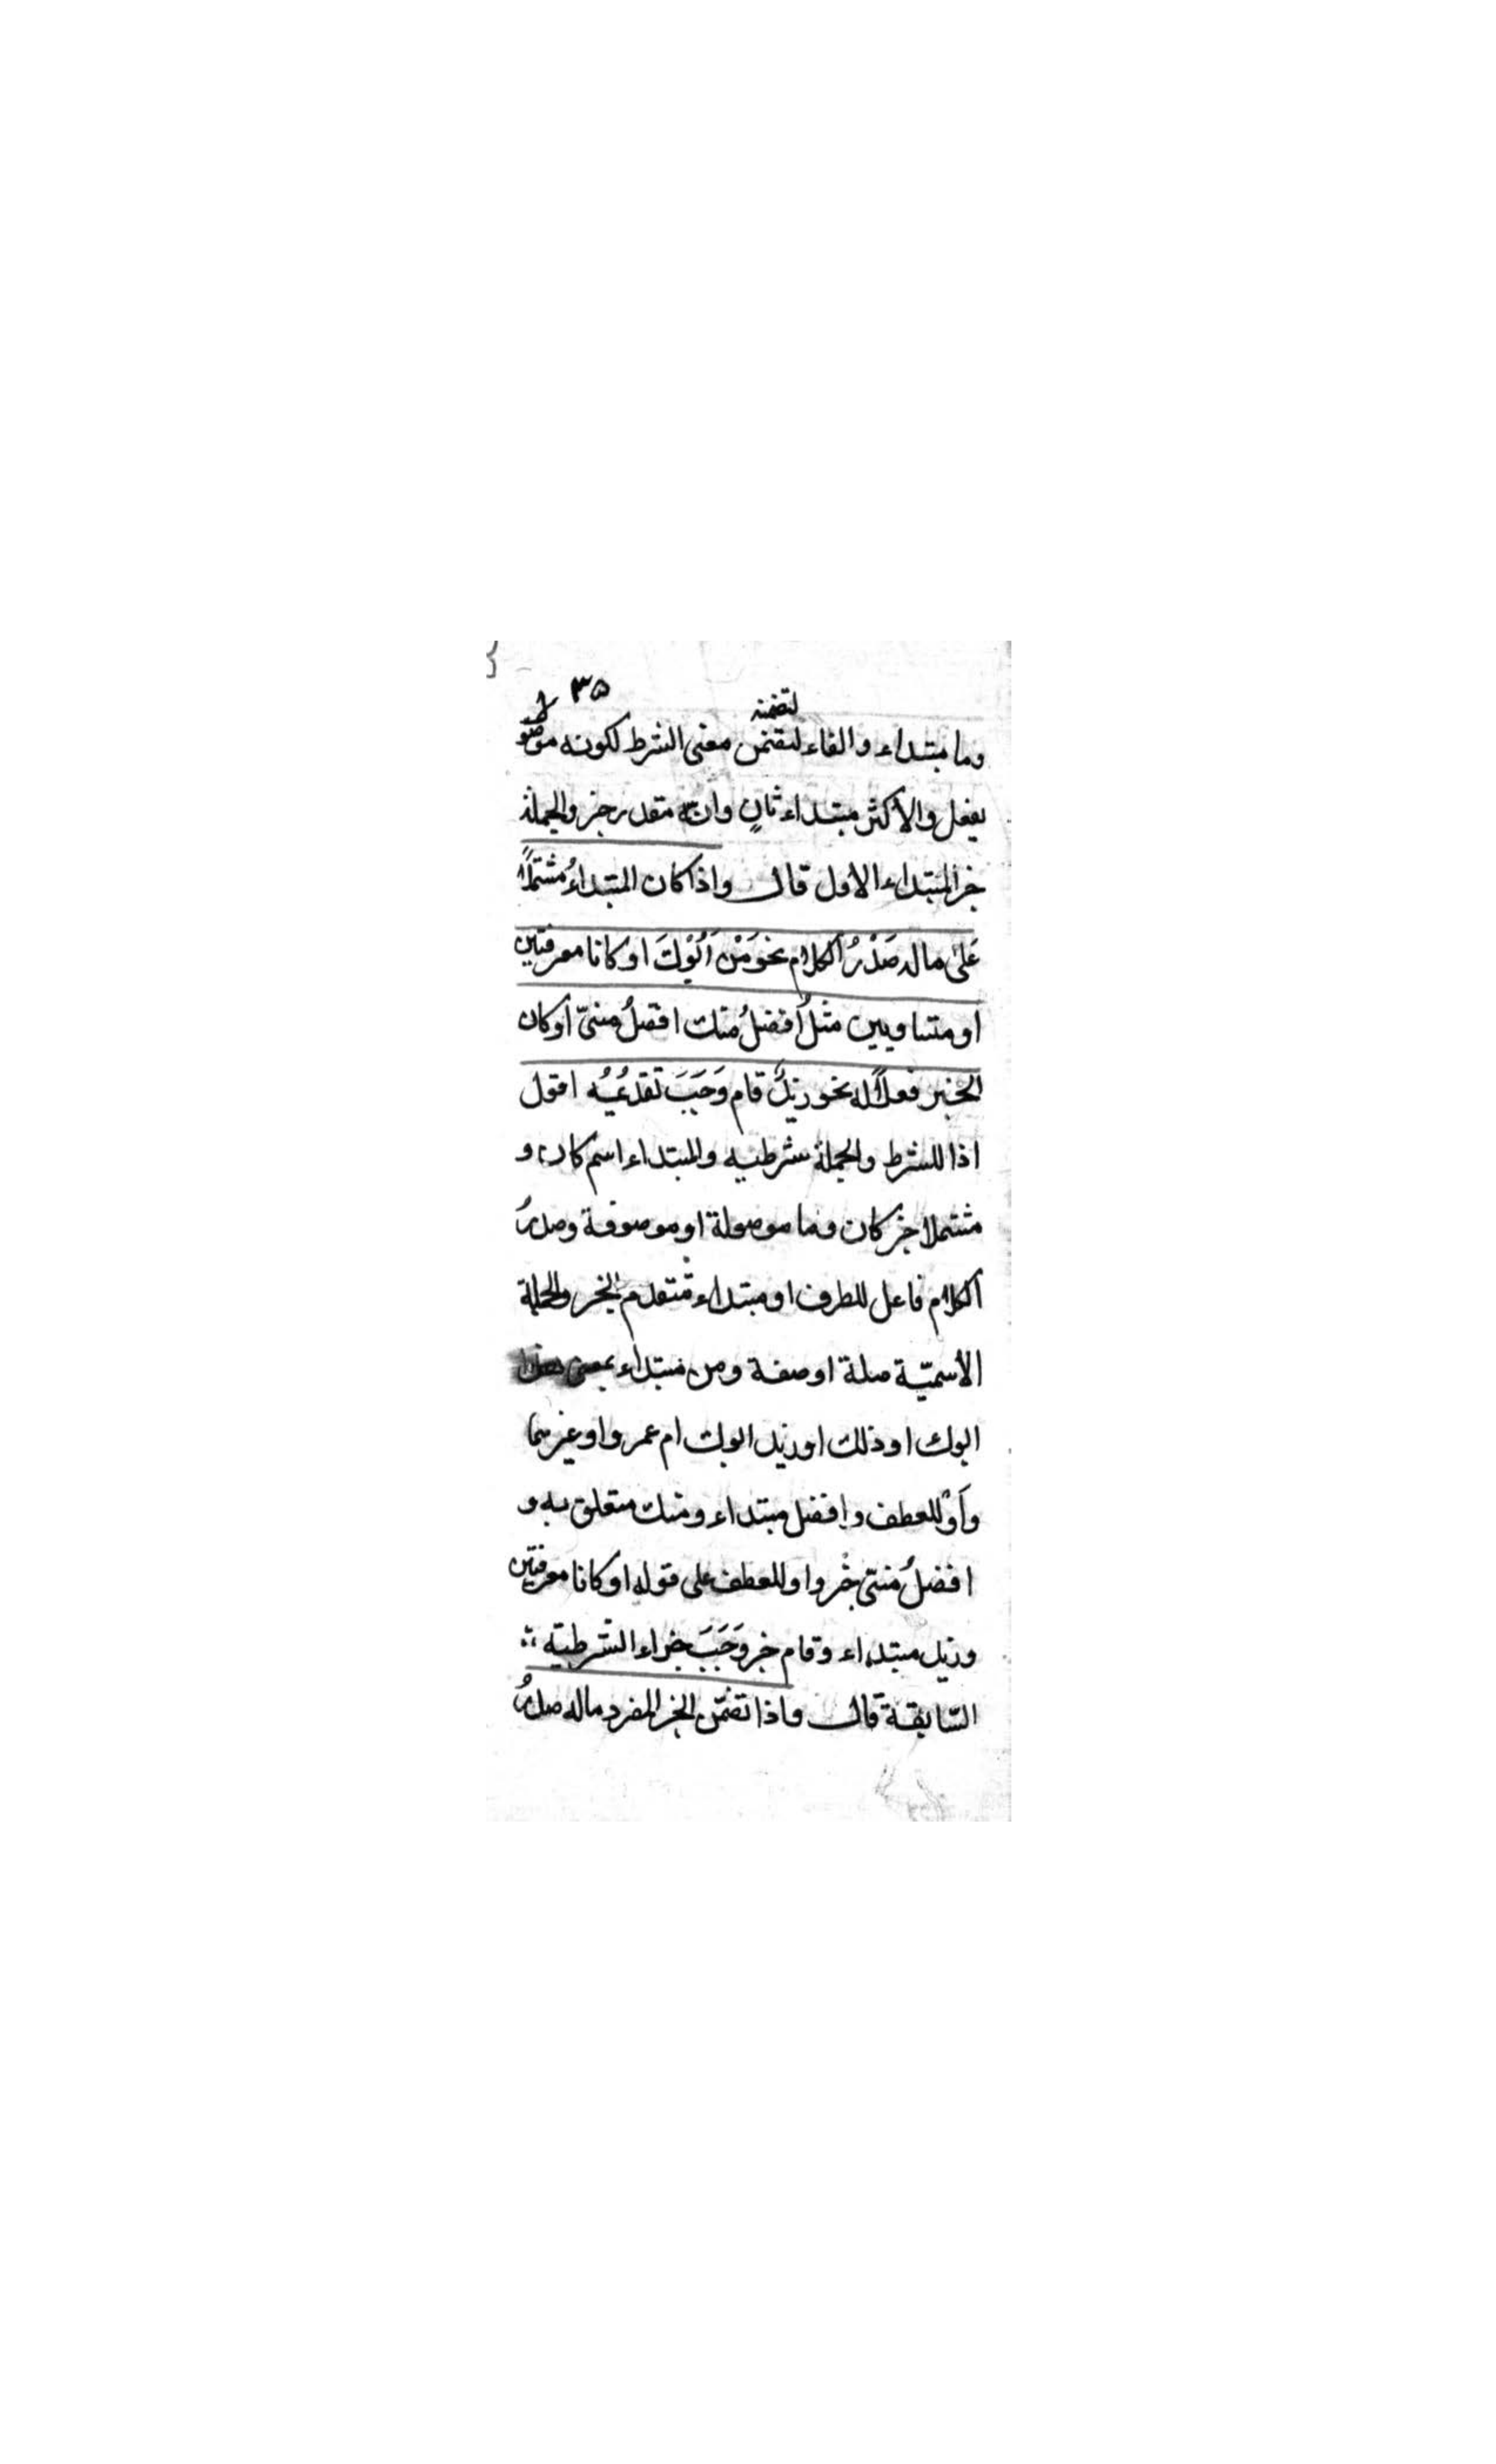 ٣٥
لتضمنه
وما مبتداء والفاء لتضمن معنى الشرط لكونه موصو
بفعل والأكثر مبتداء ثانٍ وانه مقدر خبر والجملة
خبر المبتداء الاول قال واذا كان المبتداءُ مشتملًا
عَلىٰ ماله صَدْرُ الكلام نحو مَنْ اَبُوْكَ او كانا معرفتين
او متساويين مثلُ افضلُ منك افضلُ منىّ أو كان
الخبر فعلًا له نحو زيدٌ قام وَجَبَ تقديمُه اقول
اذا للشرط والجملة شرطيه والمبتداء اسم كان و
مشتملا خبر كان وما موصولة او موصوفة وصدرُ
الكلام فاعل للظرف او مبتداء متقدم الخبر والجملة
الأسميّة صلة او صفة ومن مبتداء بمعنى
ابوك او ذلك او زيد ابوك ام عمرو او غيرهما
وأوْ للعطف وافضل مبتداء ومنك متعلق به و
افضلُ منىّ خبر واو للعطف على قوله او كانا معرفتين
وزيد مبتداء وقام خبر وَجَبَ جزاء الشّرطيّه
السّابقة قال واذا تضمّن الخبر المفرد ماله صدرُ